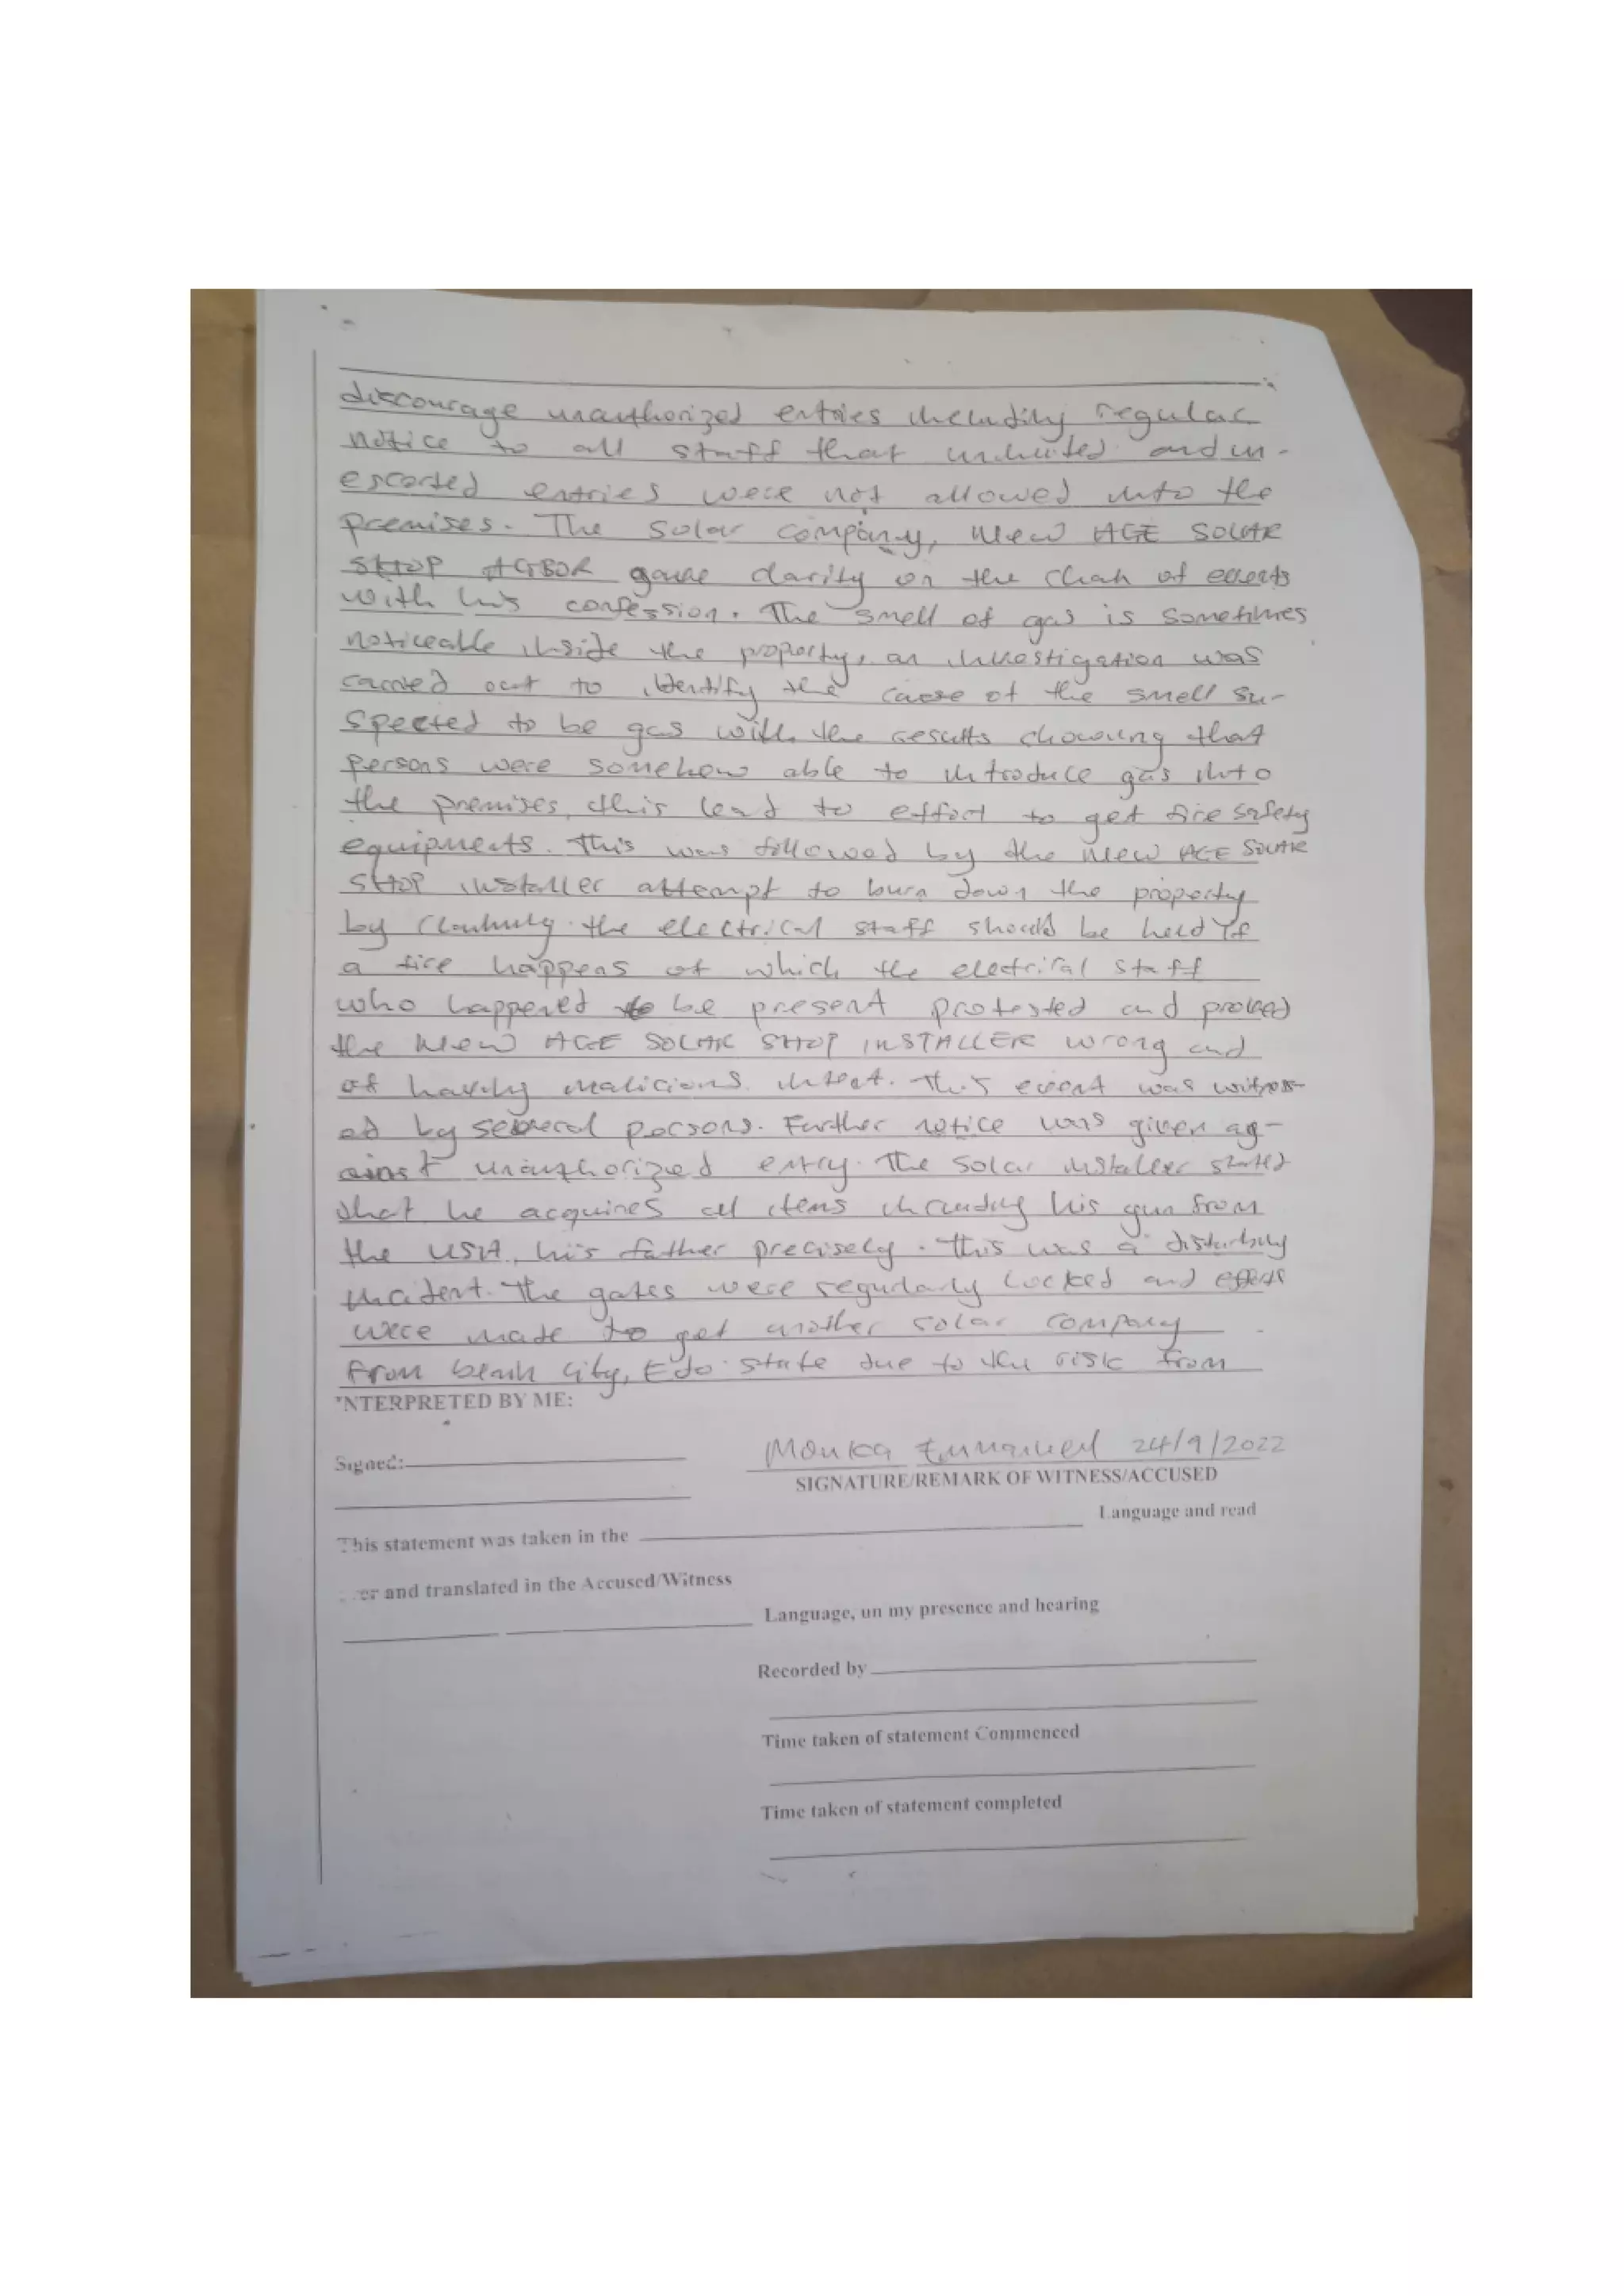 discourage unauthorized entries including regular
notice to all staff that uninvited and un-
escorted entries were not allowed into the
premises. The solar company, NEW AGE SOLAR
SHOP AGBOR gave clarity on the chain of events
with his confession. The smell of gas is sometimes
noticeable inside the property, an investigation was
carried out to identify the cause of the smell su-
spected to be gas with the results showing that
persons were somehow able to introduce gas into
the premises, this lead to effort to get fire safety
equipments. This was followed by the New AGE SOLAR
SHOP installer attempt to burn down the property
by claiming the electrical staff should be held if
a fire happens of which the electrical staff
who happened to be present protested and proved
the New AGE SOLAR SHOP INSTALLER wrong and
of having malicious intent. This event was witness-
ed by several persons. Further notice was given ag-
ainst unauthorized entry. The solar installer stated
that he acquires all items including his gun from
the USA, his father precisely. This was a disturbing
incident. The gates were regularly locked and efforts
were made to get another solar company
from benin city, Edo state due to the risk from
INTERPRETED BY ME:
Signed:
Monica Emmanuel 24/9/2022
SIGNATURE/REMARK OF WITNESS/ACCUSED
This statement was taken in the Language and read
er and translated in the Accused/Witness
Language, un my presence and hearing
Recorded by
Time taken of statement Commenced
Time taken of statement completed